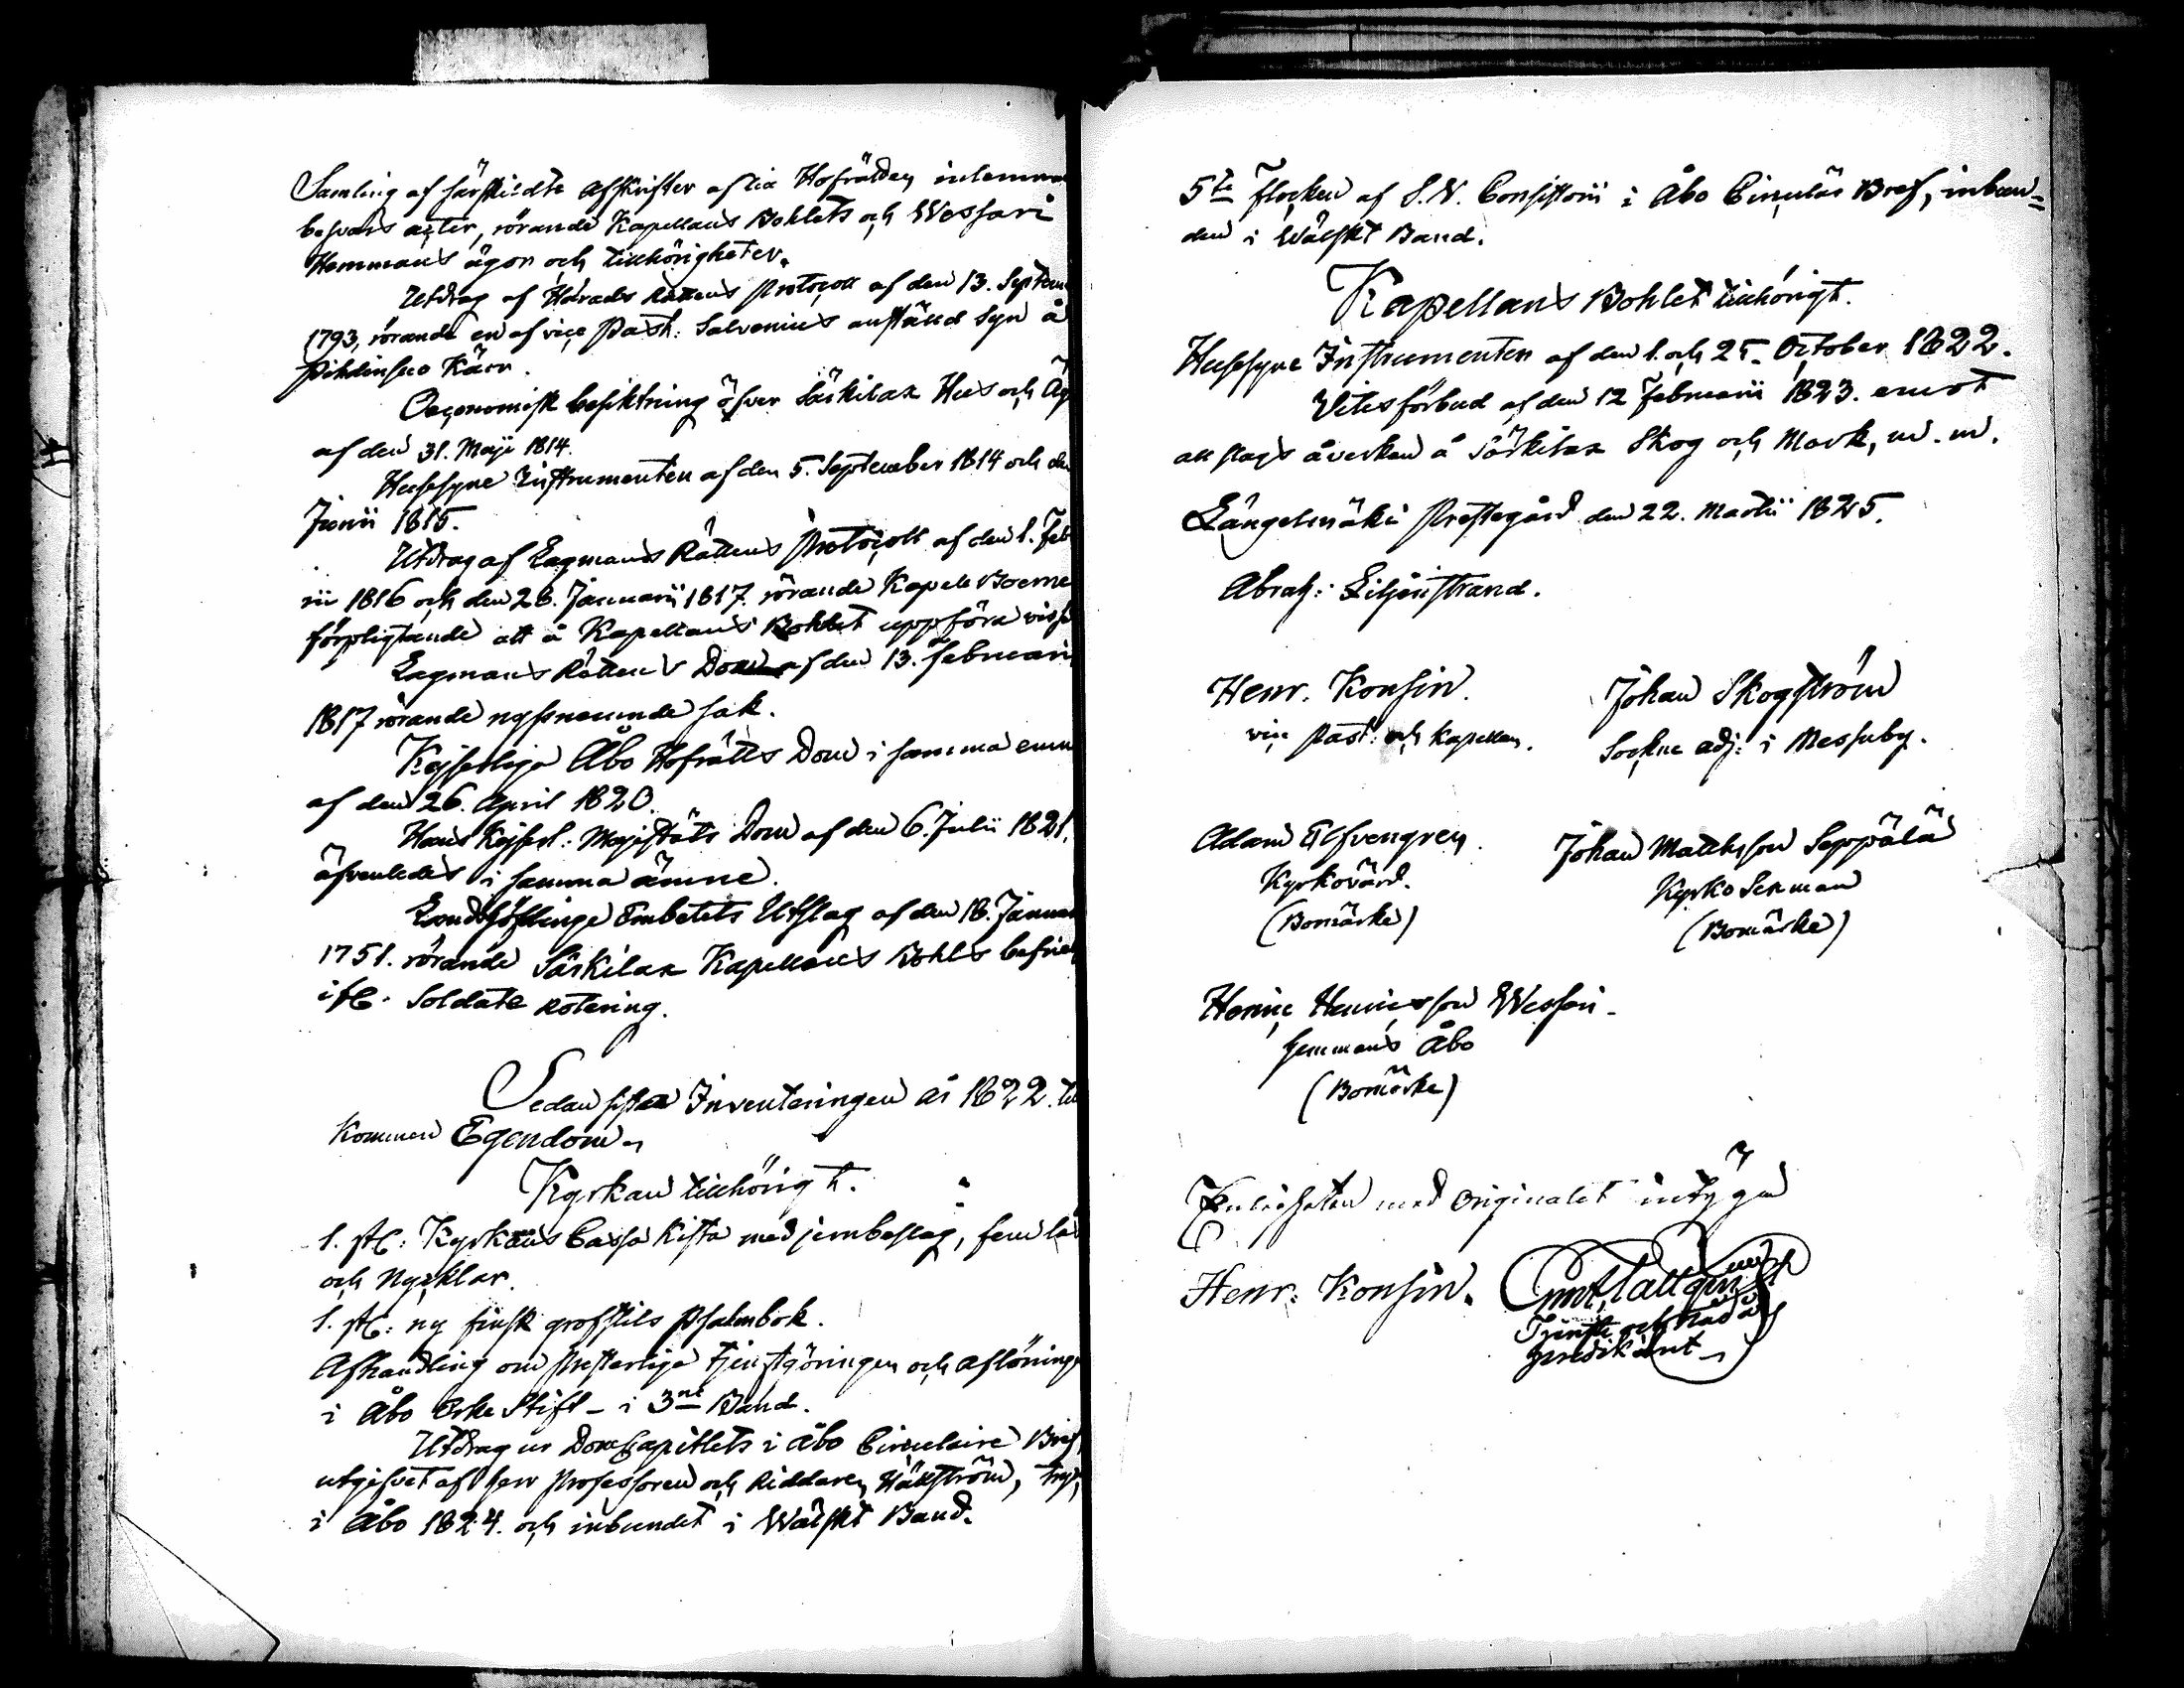 Samling af särskildte Afskrifter af tia Hofrätten inlemna
besvärs acter, rörande Kapellans Bohlets och Wessari
Hemmans ägor och tillhörigheter.
Utdrag af Härads Rättens Protocoll af den 13. Septem
1793, rörande en af vice Past: Salvenius anstäld Syn å
Pihlinsuo Kärr.
Oeconomisk besiktning öfver Säkilax Hus och Äg
af den 31. Maji 1814.
Husesyne Instrumenten af den 5. September 1814 och den
Junii 1815.
Utdrag af Lagmans Rättens Protocoll af den 1. Feb
rii 1816 och den 28. Januarii 1817. rörande Kapell Boerne
förpligtande att å Kapellans Bohlet uppföra vissa
Lagmans Rättens Dom af den 13. Februarii
1817 rörande nyssnemnde sak.
Kejserliga Åbo Hofrätts Dom i samma emn
af den 26. April 1820.
Hans Kejserl: Majestäts Dom af den 6. Julii 1821.
äfvenledes i samma ämne.
Landshöfdinge Embetets Utslag af den 18. Januar
1751. rörande Säkilax Kapellans Bohls befriel
ifr. Soldate Rotering.
Sedan sista Inventeringen år 1822. till
kommen Egendom.
Kyrkan tillhörigt.
1. st: Kyrkans Cassa Kista med jernbeslag, fem lås
och Nycklar.
1. st: ny finsk grofstils Psalmbok.
Afhandling om Presterliga Tjenstgöringen och Aflöninge
i Åbo Erke Stift - i 3ne Band.
Utdrag ur DomCapitlets i Åbo Circulaire Bref,
utgifvet af Herr Professoren och Riddaren Hällström, tryt,
i Åbo 1824. och inbundet i Wälskt Band.
5te Flocken af S. V. Consistorii i Åbo Circulär Bref, inbun=
den i Wälskt Band.
Kapellans Bohlet tillhörigt.
Husesyne Instrumenten af den 1. och 25. October 1822.
Vitesförbud af den 12 Februarii 1823. emot
all slags åverkan å Säkilax Skog och Mark, m. m.
Längelmäki Prestegård den 22. Martii 1825.
Abrah: Liljenstrand.
Henr. Konsin. Johan Skogström
vice Past: och Kapellan. Sockne adj: i Messuby.
Adam Elfvengren. Johan Mattsson Seppälä
Kyrkovärd. Kyrko Sexman
(Bomärke) (Bomärke)
Henric Henricsson Wessari
hemmans Åbo
(Bomärke)
Enligheten med Originalet intyga
Henr: Konsin.
Tjenste och Nådårs
predikant